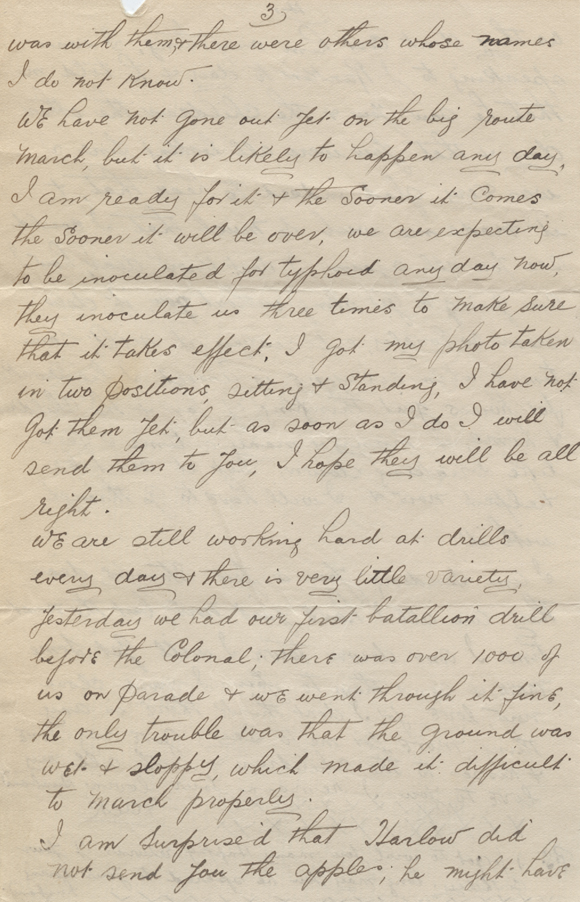 3
was with them, & there were others whose names
I do not know.
WE have not gone out yet on the big route
march, but it is likely to happen any day,
I am ready for it & the Sooner it Comes
the Sooner it will be over, we are expecting
to be inoculated for typhoid any day now,
they inoculate us three times to make sure
that it takes effect, I got my photo taken
in two positions, sitting & Standing, I have not
Got them yet, but as soon as I do I will
send them to you, I hope they will be all
right.
WE are still working hard at drills
every day & there is very little variety,
yesterday we had our first batallion drill
before the Colonal; there was over 1000 of
us on parade & we went through it fine,
the only trouble was that the ground was
wet & sloppy, which made it difficult
to march properly.
I am Surprised that Harlow did
not send you the apples; he might have